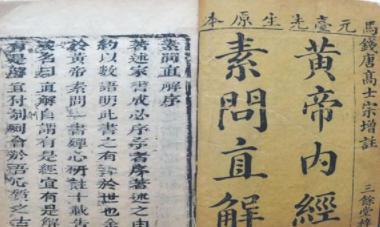 馬元臺先生原本
錢唐高士宗增註
黃帝內經
素問直解
三餘堂梓
素問直解序
著述家書成必序序書序著述之由
約以數語明此書之有於世也
於黃帝素問一書殫心研註十載告
竣名曰直解自謂有是經宜有是解
有是解宜付剞劂會於吾心質之古